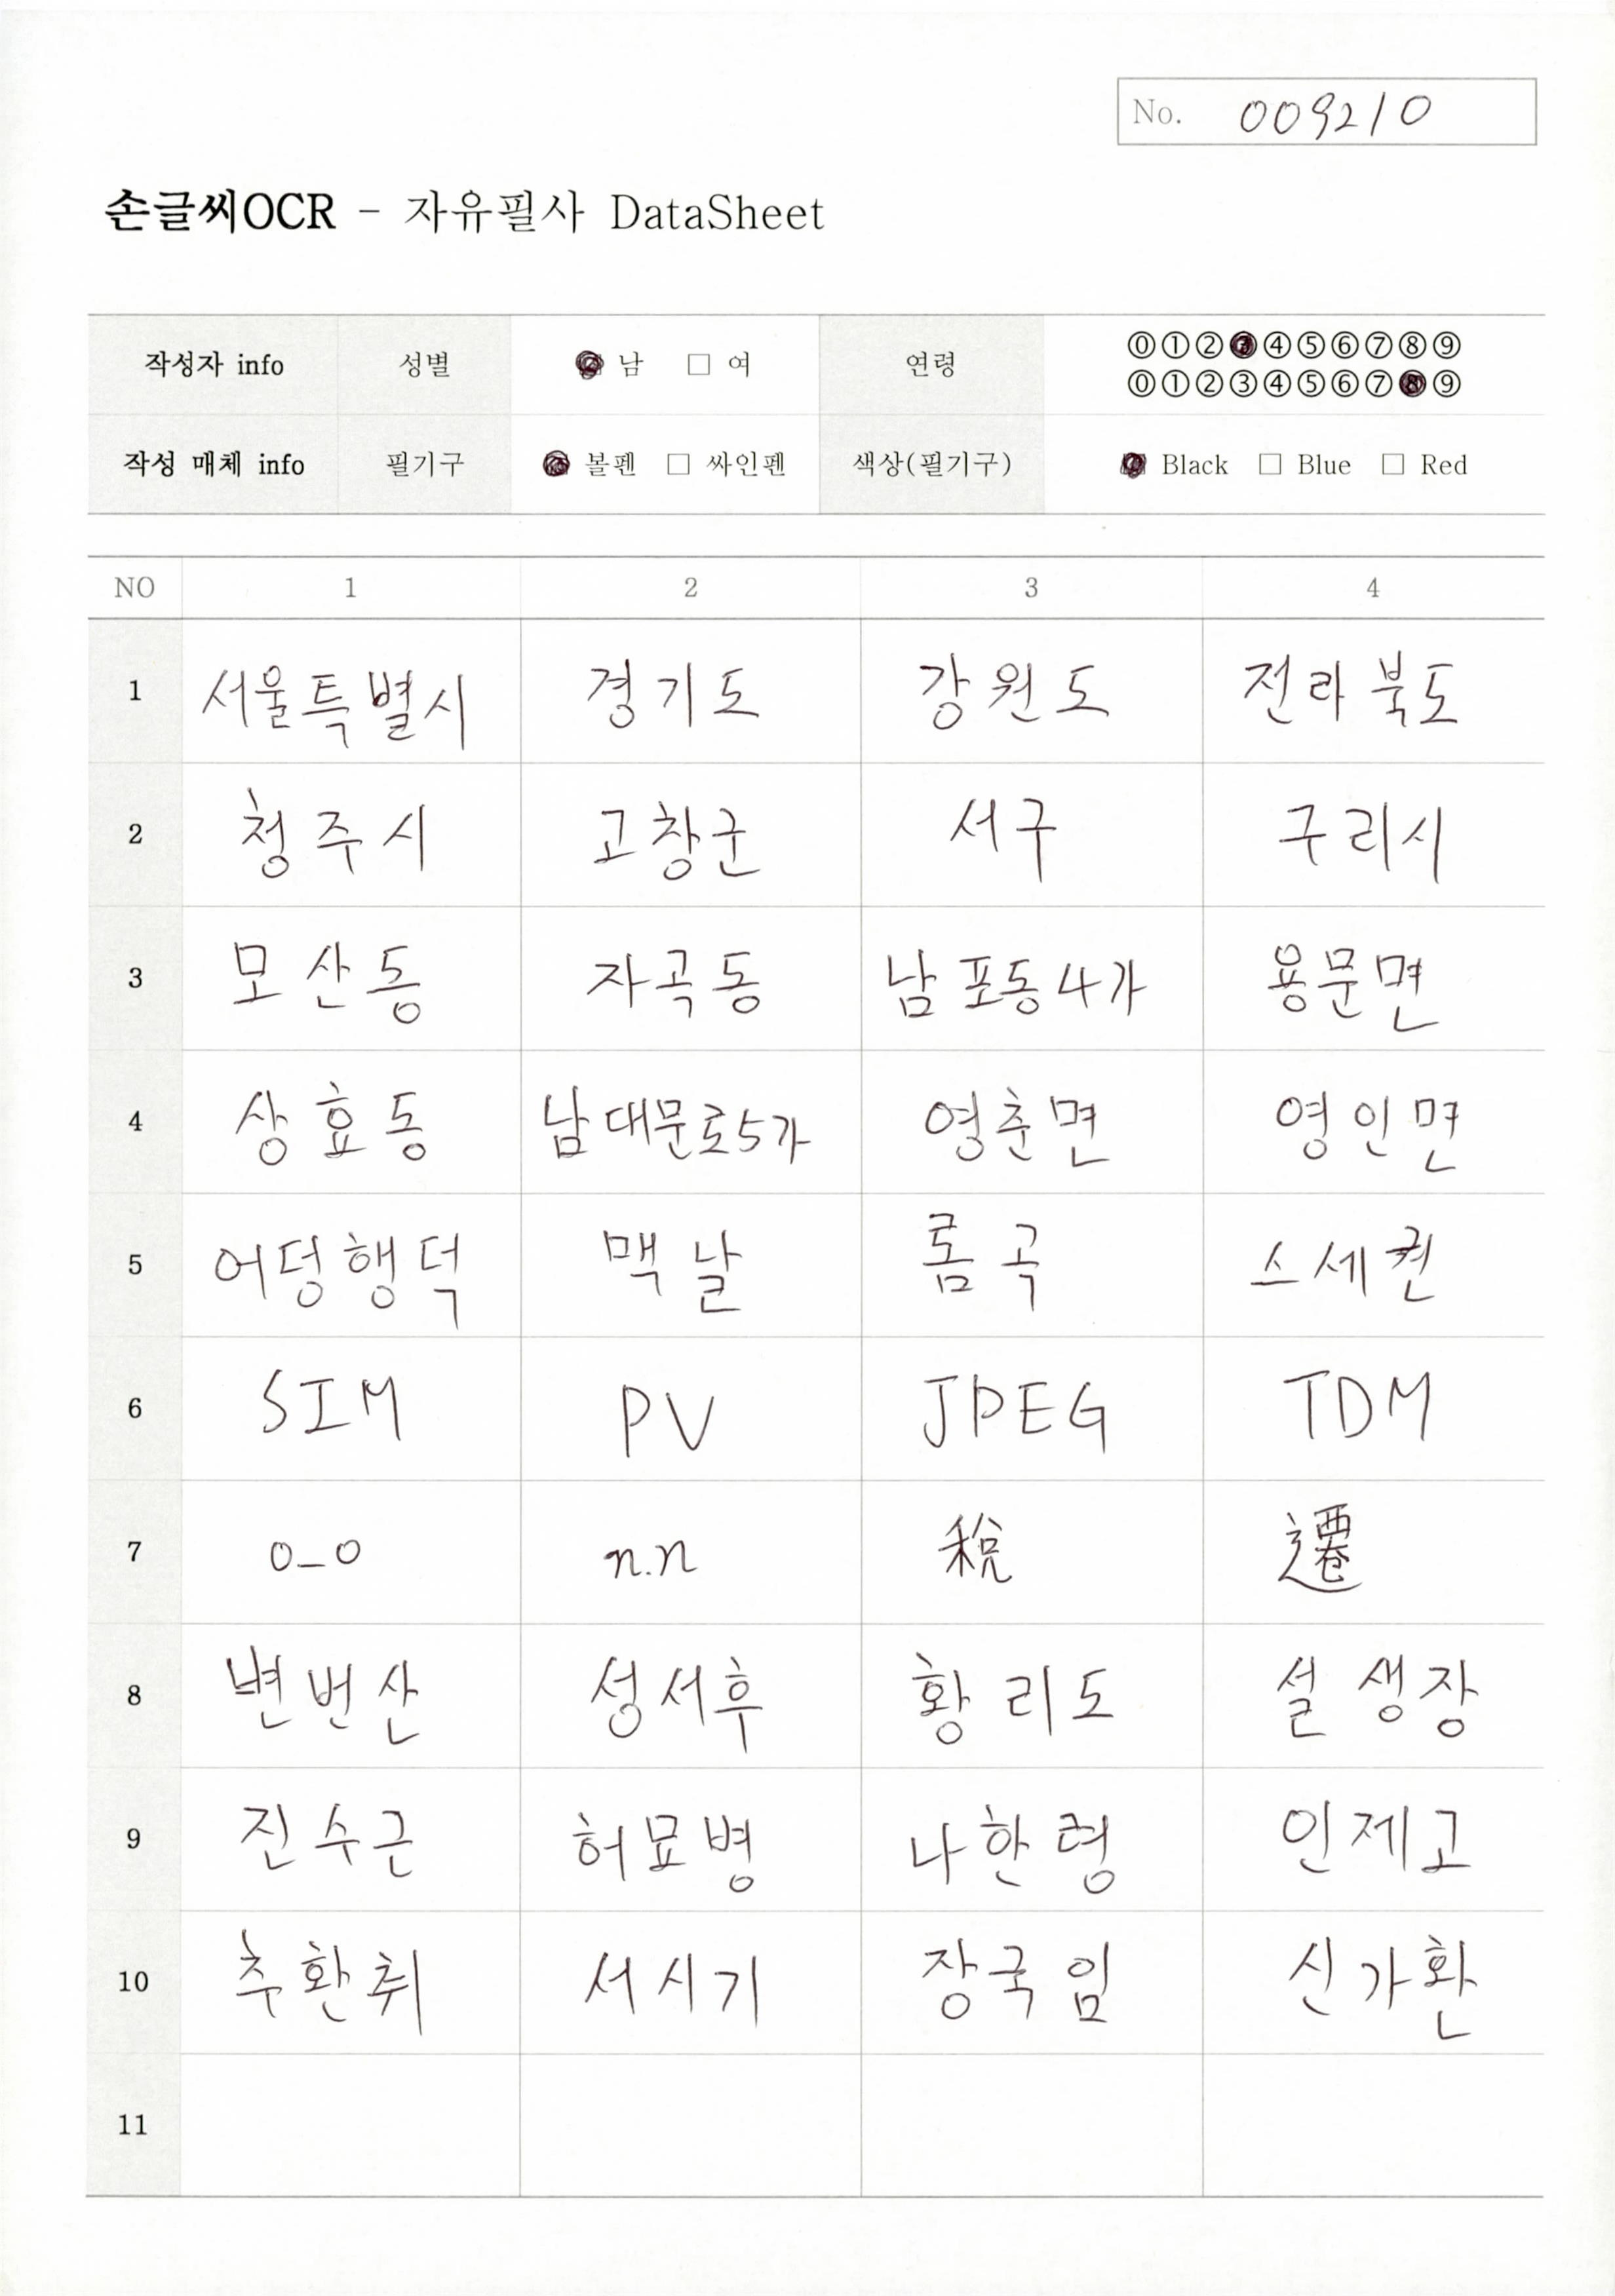 No. 009210
손글씨OCR - 자유필사 DataSheet
작성자 info 성별 남 □ 여 연령 ⓪①②③④⑤⑥⑦⑧⑨
⓪①②③④⑤⑥⑦⑧⑨
작성 매체 info 필기구 볼펜 □ 싸인펜 색상(필기구) Black □ Blue □ Red
NO 1 2 3 4
1 서울특별시 경기도 강원도 전라북도
2 청주시 고창군 서구 구리시
3 모산동 자곡동 남포동4가 용문면
4 상효동 남대문로5가 영춘면 영인면
5 어덩행덕 맥날 롬곡 스세권
6 SIM PV JPEG TDM
7 o_o n.n 稅 遷
8 변번산 성서후 황리도 설생장
9 진수근 허묘병 나한령 인제고
10 추환취 서시기 장국임 신가환
11